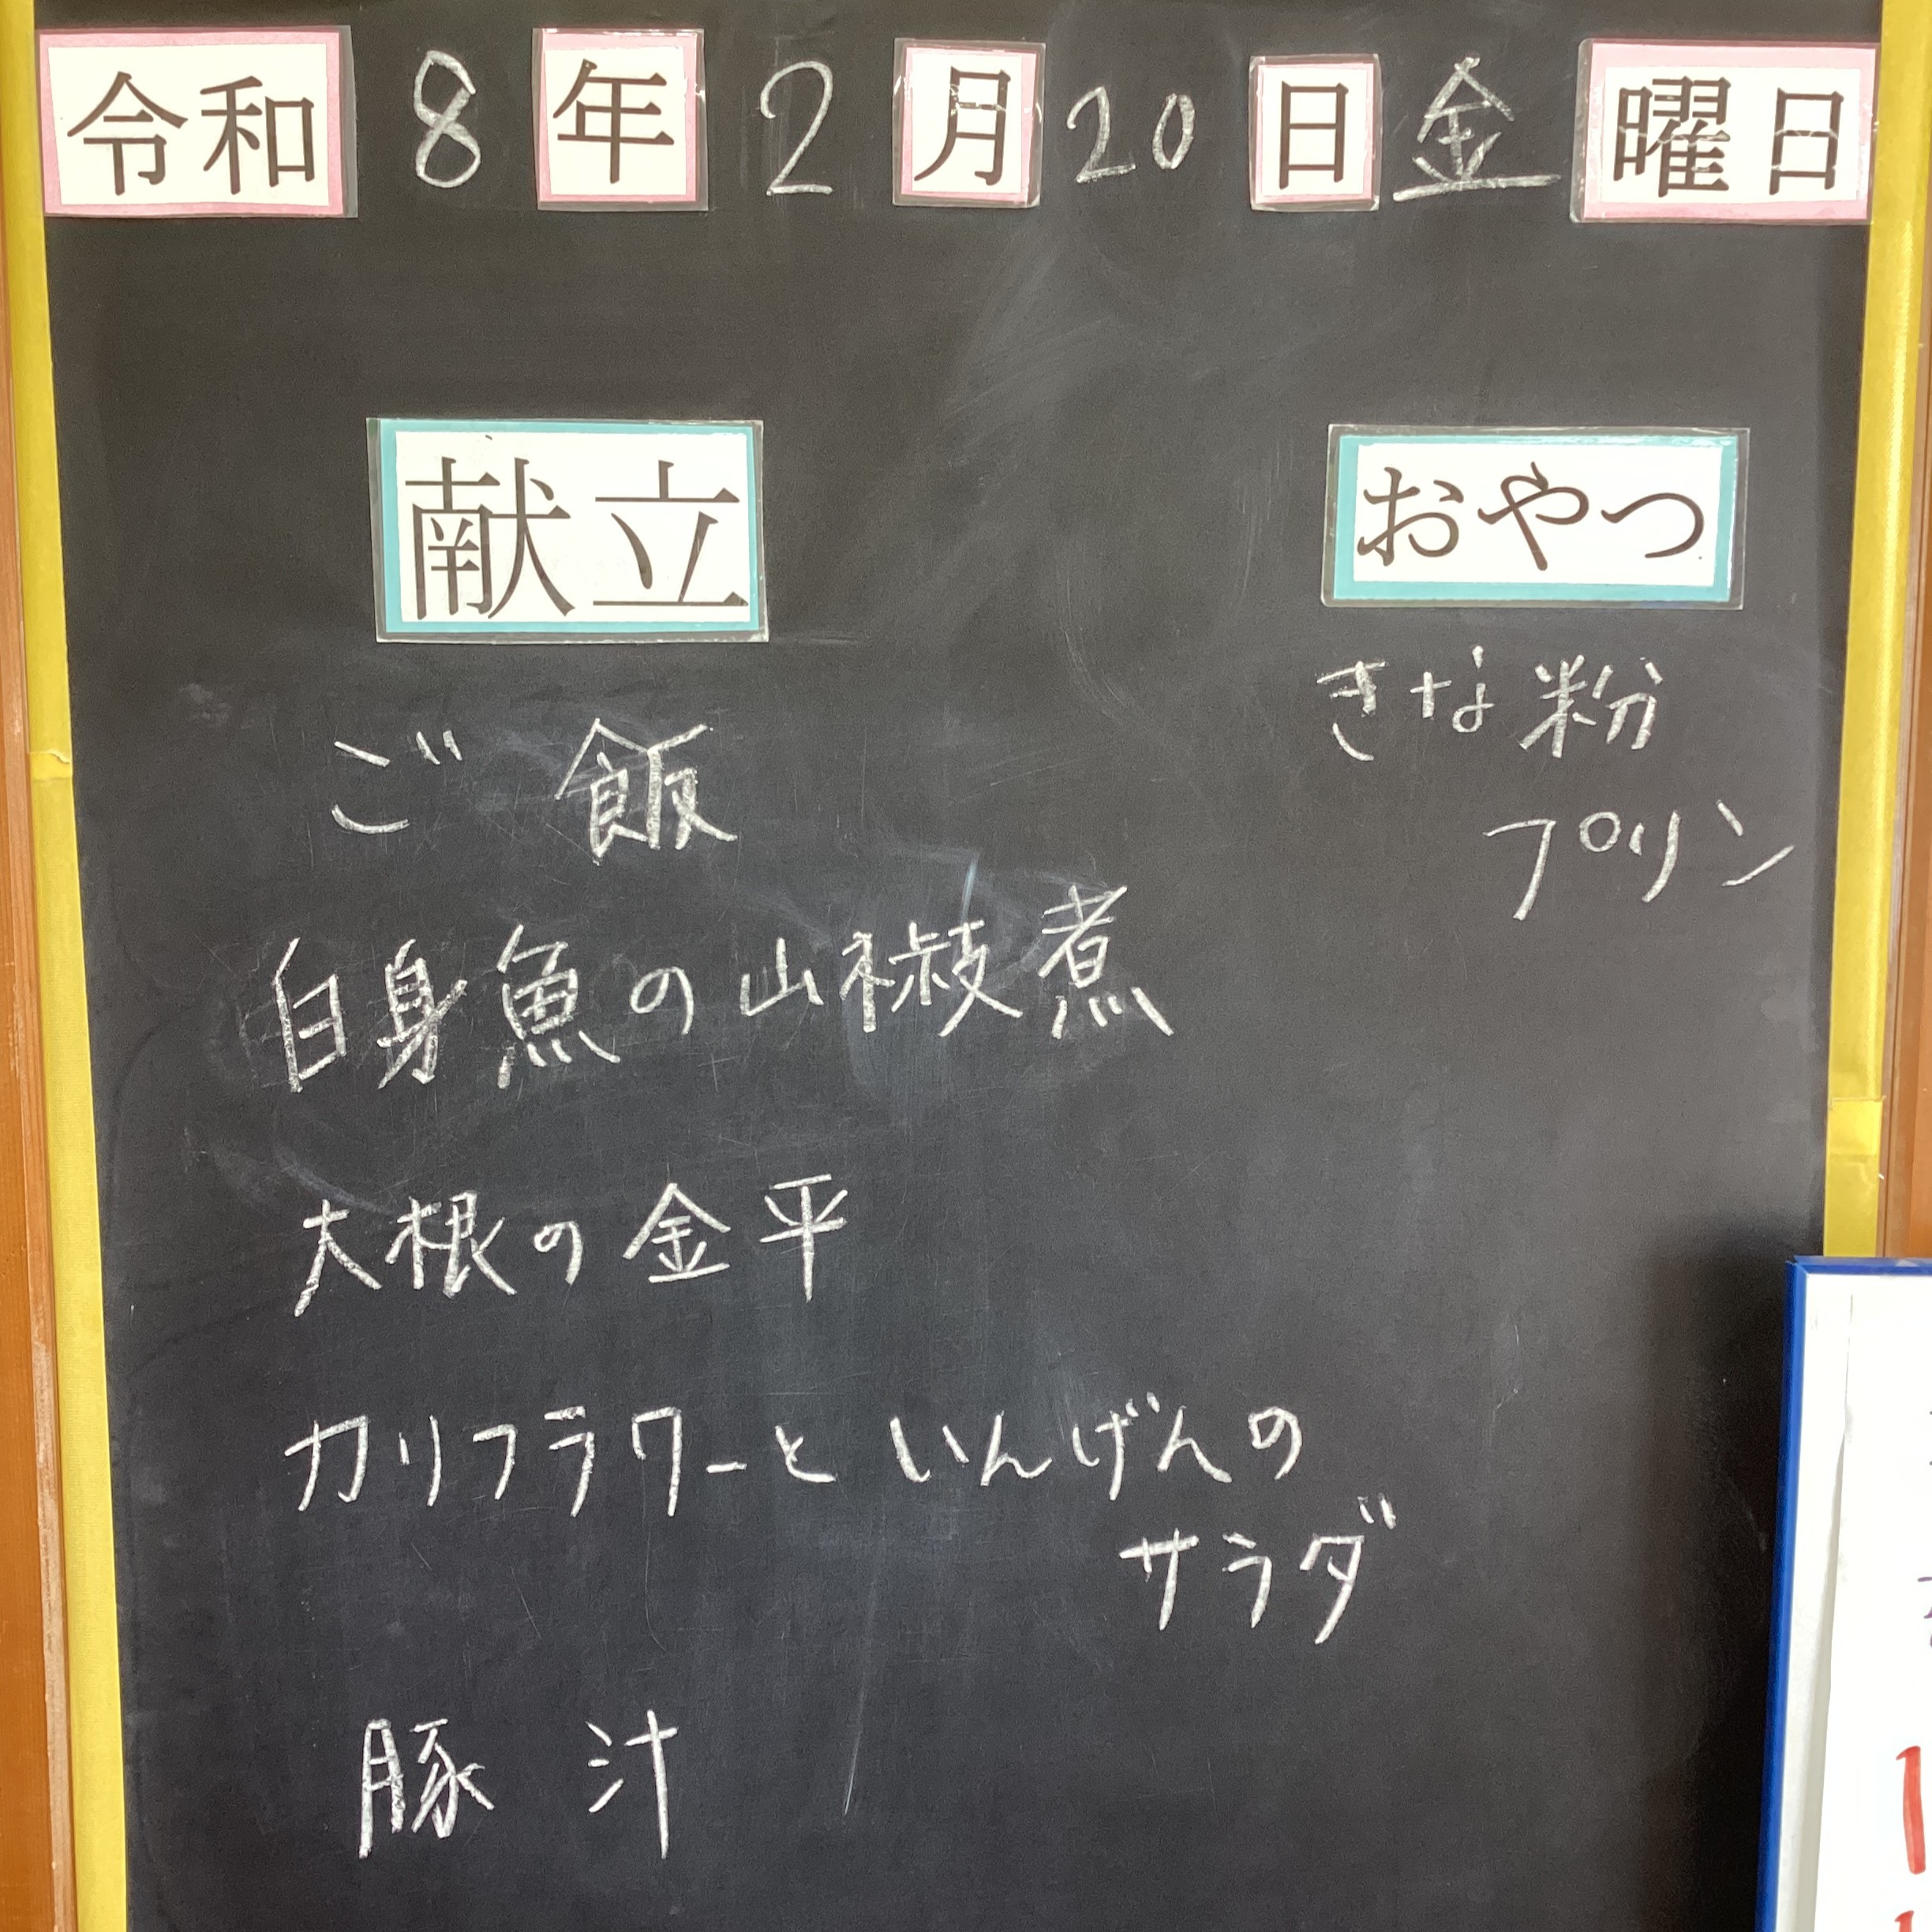 令和8年2月20日金曜日
献立
ご飯
白身魚の山椒煮
大根の金平
カリフラワーといんげんの
サラダ
豚汁
おやつ
きな粉
プリン